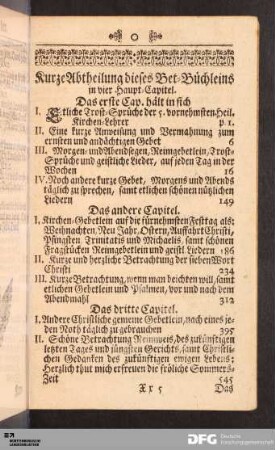 Kurze Abtheilung dieses Bet-Büchleins
in vier Haupt-Capitel.
Das erste Cap. hält in sich
I. Etliche Trost-Sprüche der 5. vornehmsten Heil.
Kirchen-Lehrer p. 1.
II. Eine kurze Anweisung und Vermahnung zum
ernsten und andächtigen Gebet 6
III. Morgen- und Abendsegen, Reimgebetlein, Trost-
Sprüche und geistliche Lieder, auf jeden Tag in der
Wochen 16
IV. Noch andere kurze Gebet, Morgens und Abends
täglich zu sprechen, samt etlichen schönen nützlichen
Liedern 149
Das andere Capitel.
I. Kirchen-Gebetlein auf die fürnehmsten Festtag als:
Weihnachten, Neu Jahr, Ostern, Auffahrt Christi,
Pfingsten Trinitatis und Michaelis, samt schönen
Fragstücken Reimgebetlein und geistl. Liedern 186
II. Kurze und herzliche Betrachtung der sieben Wort
Christi 234
III. Kurze Betrachtung, wenn man beichten will, samt
etlichen Gebetlein und Psalmen, vor und nach dem
Abendmahl 312
Das dritte Capitel.
I. Andere Christliche gemeine Gebetlein, nach eines je-
den Noth täglich zu gebrauchen 395
II. Schöne Betrachtung Reimweis, des zukünftigen
letzten Tages und jüngsten Gerichts, samt Christli-
chen Gedanken des zukünftigen ewigen Lebens:
Herzlich thut mich erfreuen die fröliche Sommers-
Zeit 545
Xr 5 Das
DFG Deutsche
Forschungsgemeinschaft